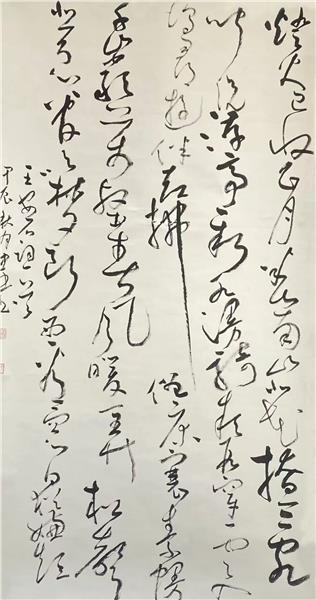 燈火已收正月半山南山北花撩亂
聞說洊亭新水漫騎款段穿雲入
塢尋遊伴卻拂僧床褰素幔
千巖萬壑春風暖一弄松聲
悲急管吹夢斷西看窗日猶嫌短
王安石詞一首
甲辰秋月